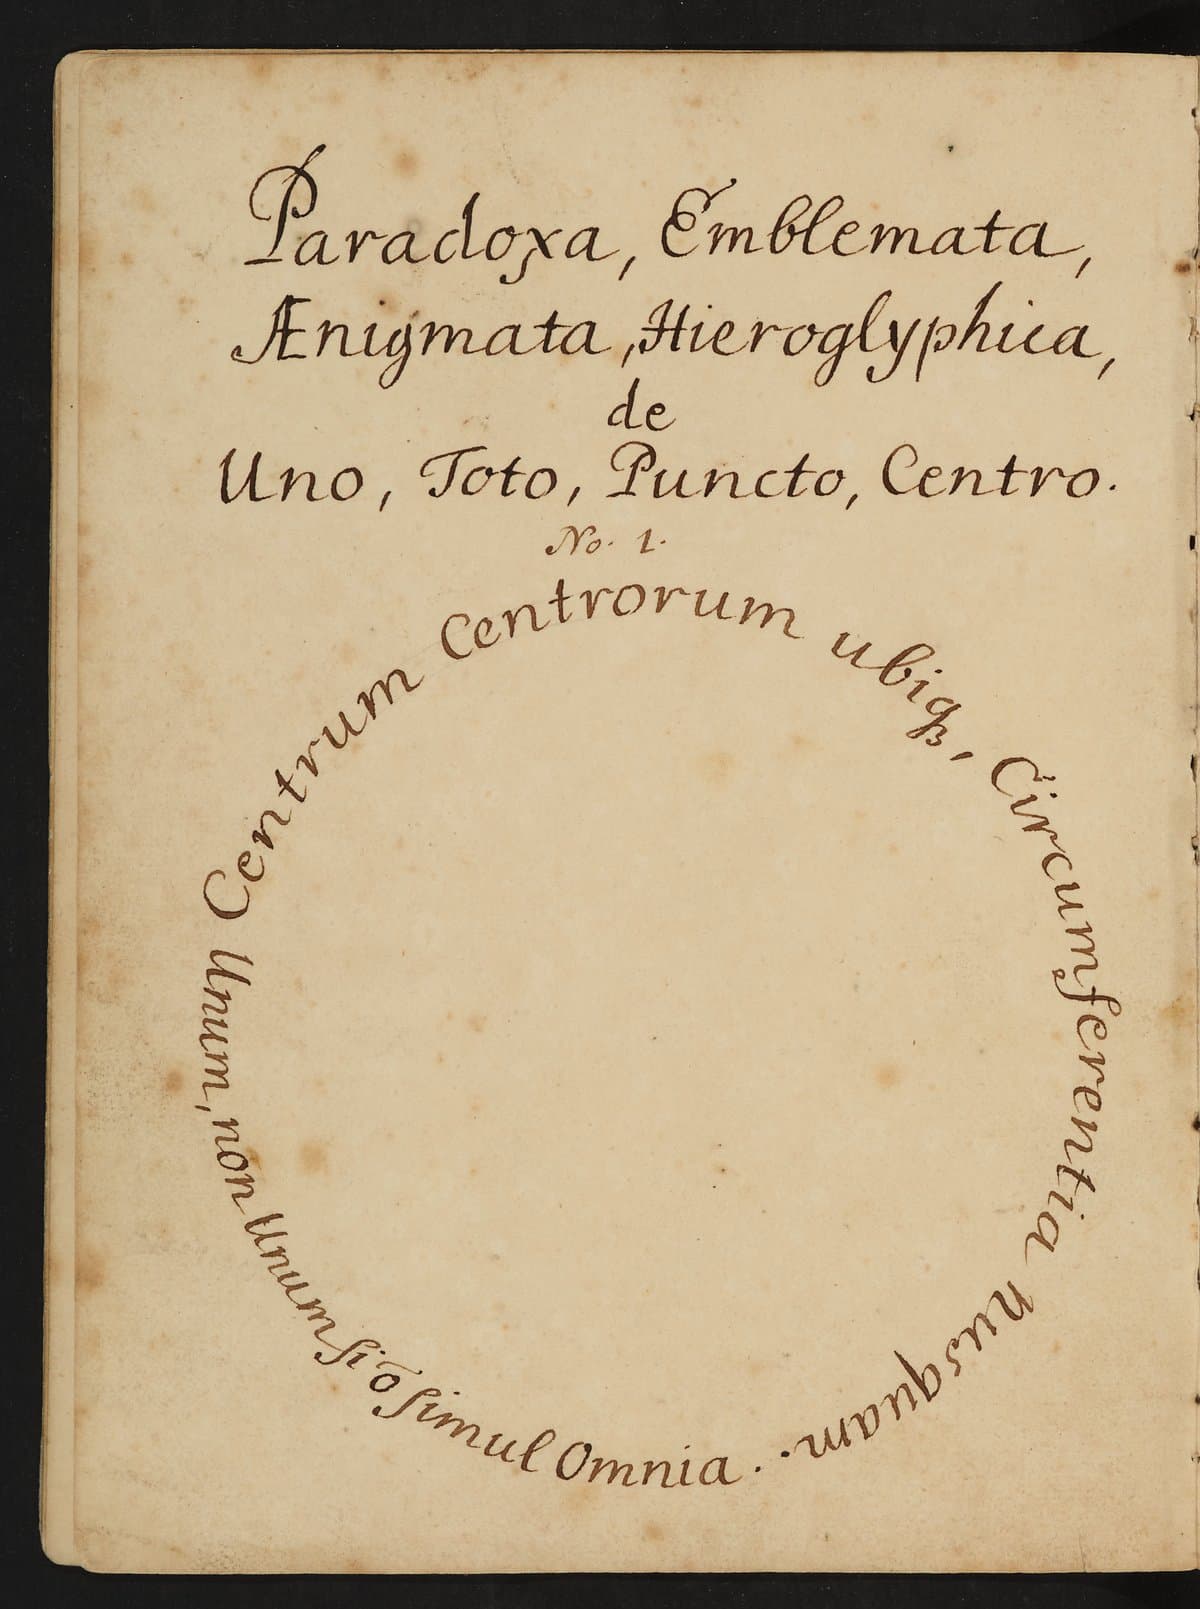 Paradoxa, Emblemata,
Ænigmata, Hieroglyphica,
de
Uno, Toto, Puncto, Centro.
No. 1.
Centrum Centrorum ubiqꝫ, Circumferentia nusquam.
Unum, non Unum, simul Omnia.